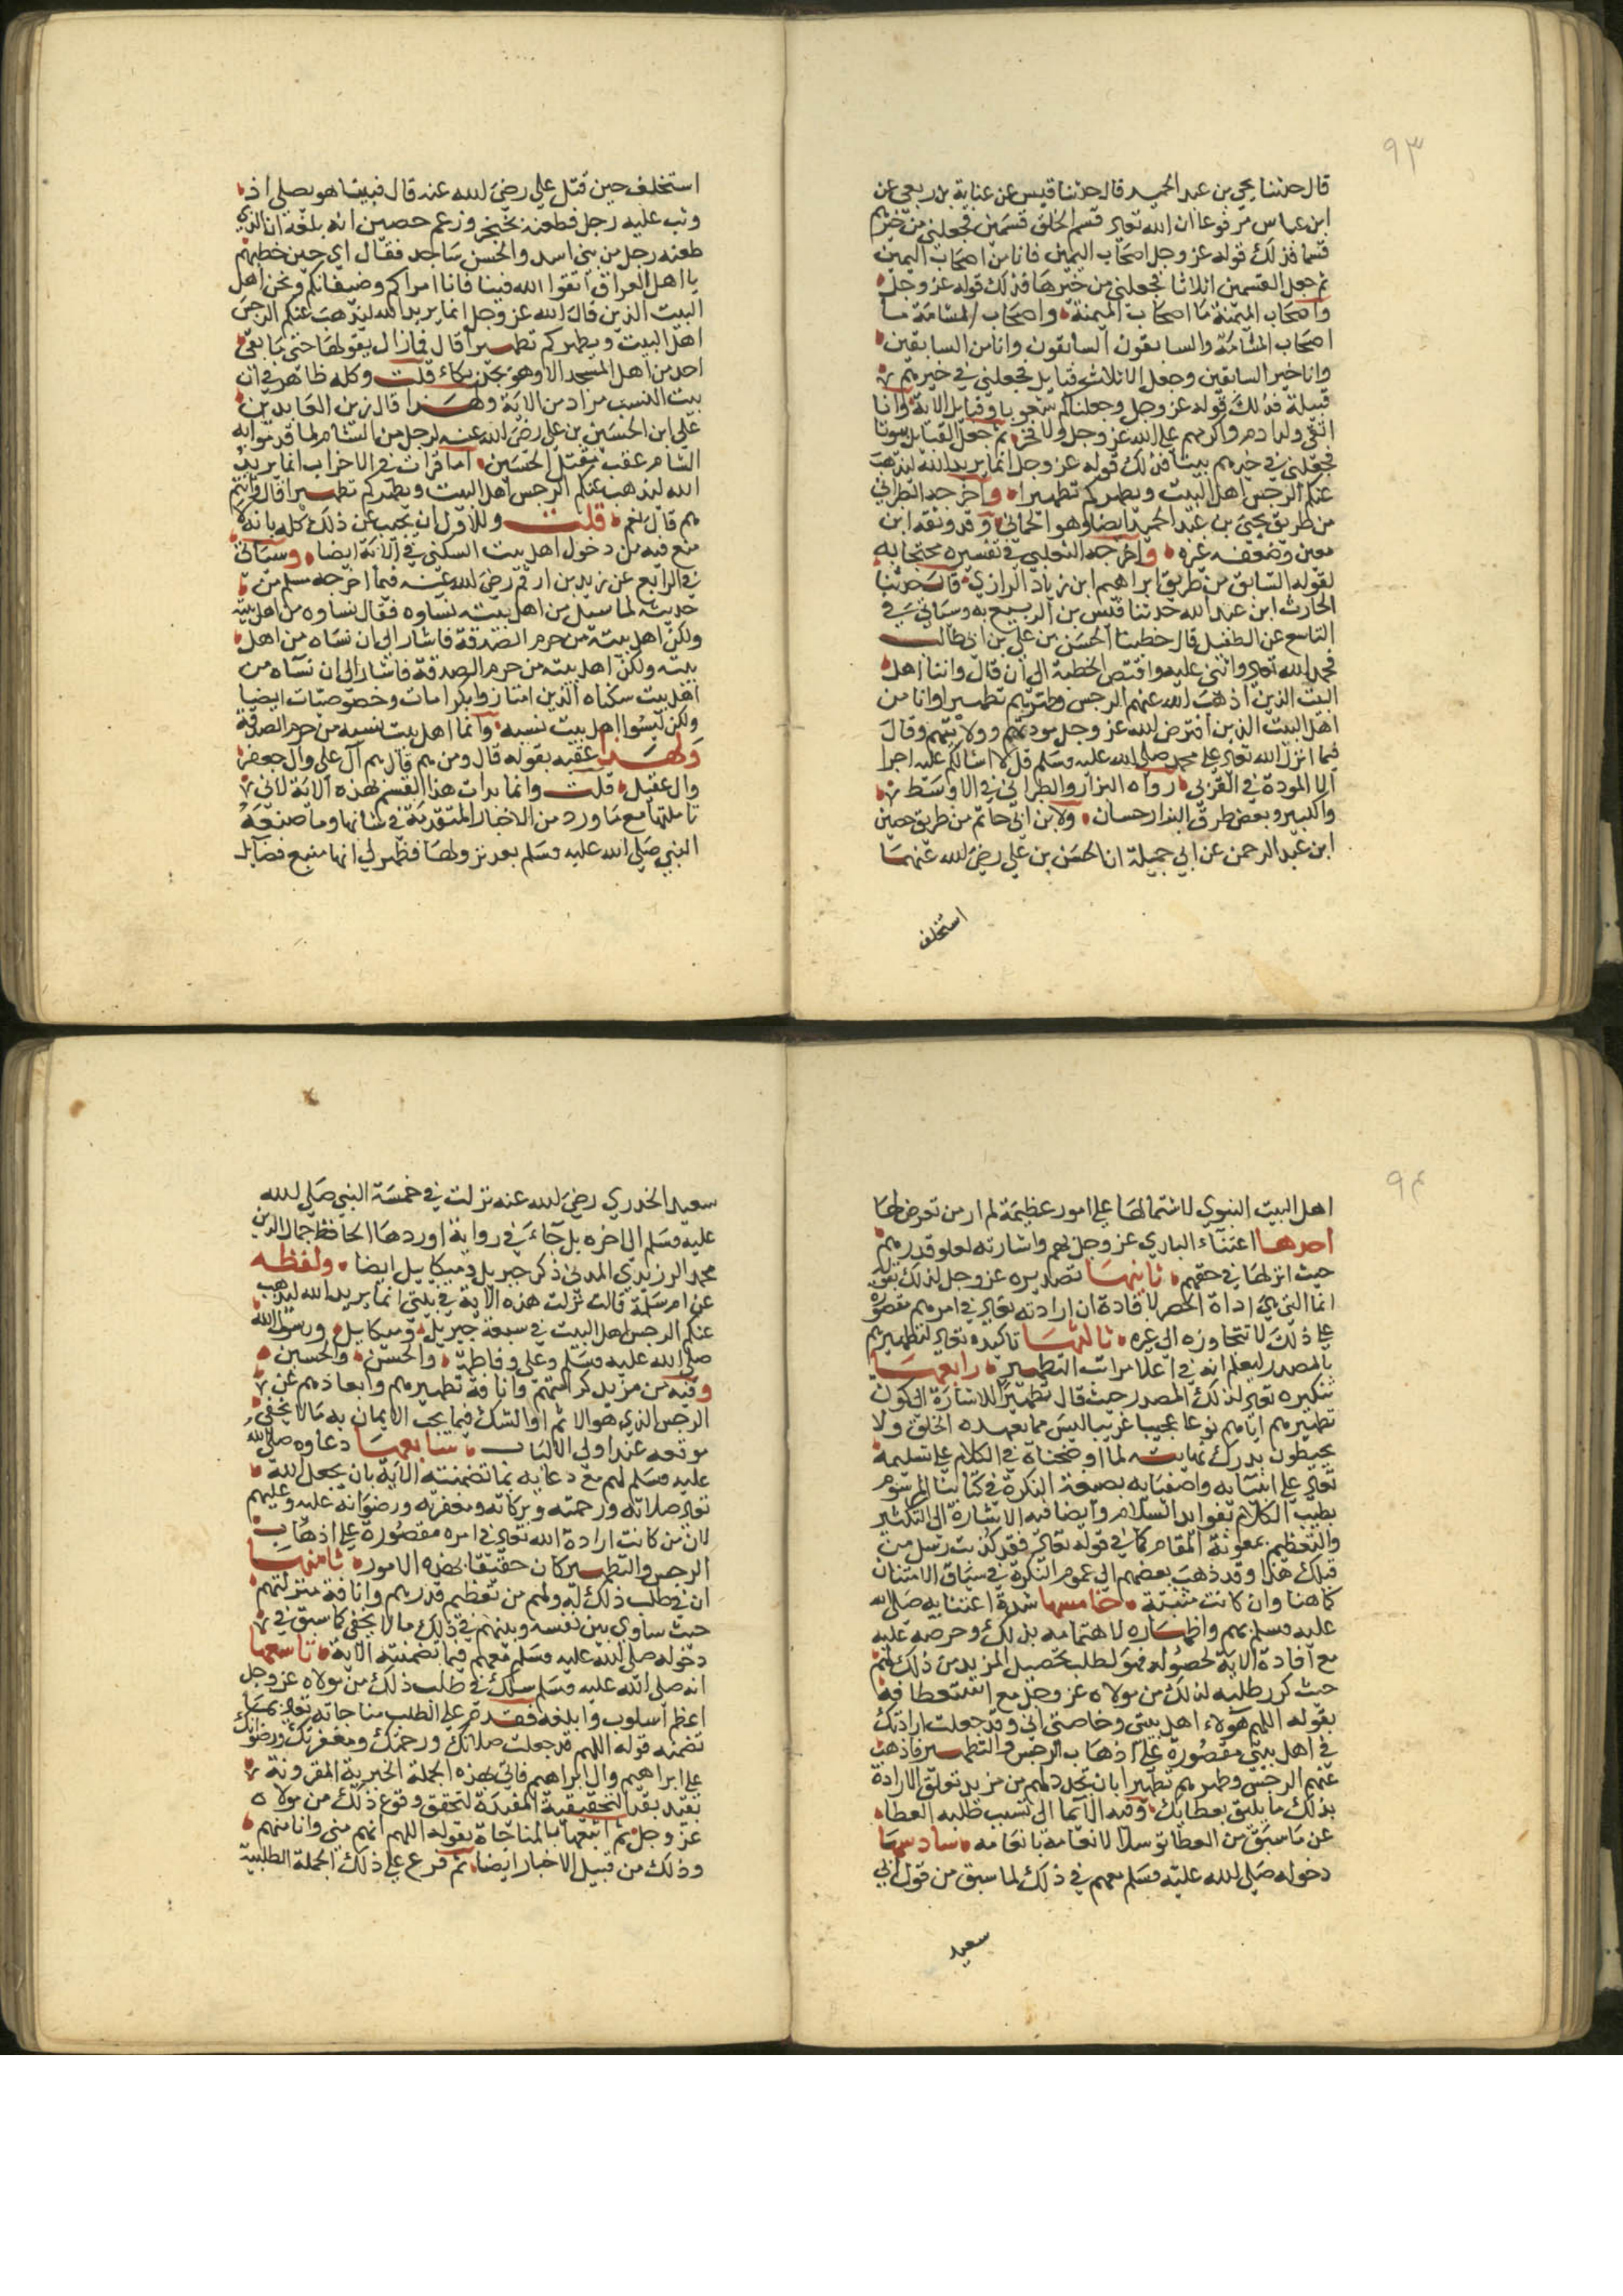 ٩٣
قال حدثنا يحيى بن عبد الحميد قال حدثنا قيس عن عباية بن ربعي عن
ابن عباس مرفوعا ان الله تعالى قسم الخلق قسمين فجعلني من خيرهم
قسما فذلك قوله عز وجل اصحاب اليمين فانا من اصحاب اليمين
ثم جعل القسمين اثلاثا فجعلني من خيرها فذلك قوله عز وجل
واصحاب الميمنة ما اصحاب الميمنة واصحاب المشامة ما
اصحاب المشامة والسابقون السابقون وانا من السابقين
وانا خير السابقين وجعل الاثلاث قبايل فجعلني في خيرهم
قبيلة فذلك قوله عز وجل وجعلناكم شعوبا وقبايل الاية وانا
اتقى ولد ادم واكرمهم على الله عز وجل ولا فخر ثم جعل القبايل بيوتا
فجعلني في خيرهم بيتا فذلك قوله عز وجل انما يريد الله ليذهب
عنكم الرجس اهل البيت ويطهركم تطهيرا واخرجه الطبراني
من طريق يحيى بن عبد الحميد ايضا وهو الحماني وقد وثقه ابن
معين وضعفه غيره واخرجه الثعلبي في تفسيره محتجا به
لقوله السابق من طريق ابراهيم ابن زياد الرازي قال حدثنا
الحارث ابن عبد الله حدثنا قيس بن الربيع به وسياتي في
التاسع عن الطفيل قال خطبنا الحسن بن علي بن ابي طالب
فحمد الله تعالى واثنى عليه واقتص الخطبة الى ان قال وانا اهل
البيت الذين اذهب الله عنهم الرجس وطهرهم تطهيرا وانا من
اهل البيت الذين افترض الله عز وجل مودتهم وولايتهم وقال
فيما انزل الله تعالى على محمد صلى الله عليه وسلم قل لا اسالكم عليه اجرا
الا المودة في القربى رواه البزار والطبراني في الاوسط
والكبير وبعض طرق البزار حسان ولابن ابي حاتم من طريق حصين
ابن عبد الرحمن عن ابي جميلة ان الحسن بن علي رضي الله عنهما
استخلف
استخلف حين قتل علي رضي الله عنه قال فبينا هو يصلي اذ
وثب عليه رجل فطعنه بخنجر وزعم حصين انه بلغه ان الذي
طعنه رجل من بني اسد والحسن ساجد فقال اي حين خطبهم
يا اهل العراق اتقوا الله فينا فانا امراكم وضيفانكم ونحن اهل
البيت الذين قال الله عز وجل انما يريد الله ليذهب عنكم الرجس
اهل البيت ويطهركم تطهيرا قال فمازال يقولها حتى ما بقي
احد من اهل المسجد الا وهو يحن بكاء قلت وكله ظاهر في ان
بيت النسب مراد من الاية ولهذا قال زين العابدين
علي ابن الحسين بن علي رضي الله عنه لرجل من الشام لما قدموا به
الشام عقب مقتل الحسين اما قرات في الاحزاب انما يريد
الله ليذهب عنكم الرجس اهل البيت ويطهركم تطهيرا قال وانتم
هم قال نعم قلت وللاول ان يجيب عن ذلك كله بانه
منع فيه من دخول اهل بيت السكنى في الاية ايضا وسياتي
في الرابع عن زيد بن ارقم رضي الله عنه فيما اخرجه مسلم من
حديثه لما سيل من اهل بيته نساوه فقال نساوه من اهل بيته
ولكن اهل بيته من حرم الصدقة فاشار الى ان نساه من اهل
بيته ولكن اهل بيته من حرم الصدقة فاشار الى ان نساه من
اهل بيت سكناه الذين امتازوا بكرامات وخصوصيات ايضا
ولكن ليسوا اهل بيت نسبه وانما اهل بيت نسبه من حرم الصدقة
ولهذا عقبه بقوله قال ومن هم قال هم آل علي وال جعفر
وال عقيل قلت وانما بدات هذا القسم بهذه الاية لاني
تاملتها مع ما ورد من الاخبار المتقدمة في شانها وما صنعه
النبي صلى الله عليه وسلم بعد نزولها فظهر لي انها منبع فضايل
٩٤
اهل البيت النبوي لاشتمالها على امور عظيمة لم ار من تعرض لها
احدها اعتناء الباري عز وجل بهم واشارته لعلو قدرهم
حيث انزلها في حقهم ثانيها تصديره عز وجل لذلك بقوله
انما التي هي اداة الحصر لافادة ان ارادته تعالى في امرهم مقصورة
على ذلك لا تتجاوزه الى غيره ثالثها تاكيده تعالى لتطهيرهم
بالمصدر ليعلم انه في اعلا مراتب التطهير رابعها
تنكيره تعالى لذلك المصدر حيث قال تطهيرا للاشارة الى كون
تطهيرهم اياهم نوعا عجيبا غريبا ليس مما يعهده الخلق ولا
يحيطون بدرك نهايته لما اوضحناه في الكلام على تسليمه
تعالى على انبيايه واصفيايه بصيغة النكرة في كتابنا المرسوم
بطيب الكلام بفوايد السلام وايضا فيه الاشارة الى التكثير
والتعظيم بمعونة المقام كما في قوله تعالى فقد كذبت رسل من
قبلك هذا وقد ذهب بعضهم الى عموم النكرة في سياق الامتنان
كما هنا وان كانت مثبتة خامسها شدة اعتنايه صلى الله
عليه وسلم بهم واظهاره لاهتمامه بذلك وحرصه عليه
مع افادة الاية لحصوله فهو لطلب تحصيل المزيد من ذلك لهم
حيث كرر طلبه لذلك من مولاه عز وجل مع استعطافه
بقوله اللهم هولاء اهل بيتي وخاصتي اي وقد جعلت ارادتك
في اهل بيتي مقصورة على اذهاب الرجس والتطهير فاذهب
عنهم الرجس وطهرهم تطهيرا بان تجدد لهم من مزيد تعلق الارادة
بذلك ما يليق بعطايك وفيه الايما الى تسبب طلبه العطا
عن ما سبق من العطا توسلا لانعامه بانعامه سادسها
دخوله صلى الله عليه وسلم معهم في ذلك لما سبق من قول ابي
سعيد
سعيد الخدري رضي الله عنه نزلت في خمسة النبي صلى الله
عليه وسلم الى اخره بل جاء في رواية اوردها الحافظ جمال الدين
محمد الزرندي المدني ذكر جبريل وميكاييل ايضا ولفظه
عن ام سلمة قالت نزلت هذه الاية في بيتي انما يريد الله ليذهب
عنكم الرجس اهل البيت في سبعة جبريل وميكايل ورسول الله
صلى الله عليه وسلم وعلي وفاطمة والحسن والحسين
وفيه من مزيد كرامتهم وانافة تطهيرهم وابعادهم عن
الرجس الذي هو الاثم او الشك فيما يجب الايمان به مالا يخفى
موقعه عند اولي الالباب سابعها دعاوه صلى الله
عليه وسلم لهم مع دعايه بما تضمنته الاية بان يجعل الله
تعالى صلاته ورحمته وبركاته ومغفرته ورضوانه عليه وعليهم
لان من كانت ارادة الله تعالى في امره مقصورة على اذهاب
الرجس والتطهير كان حقيقا بهذه الامور ثامنها
ان في طلب ذلك له ولهم من تعظيم قدرهم وانافة منزلتهم
حيث ساوى بين نفسه وبينهم في ذلك مالا يخفى كما سبق في
دخوله صلى الله عليه وسلم معهم فيما تضمنته الاية تاسعها
انه صلى الله عليه وسلم سلك في طلب ذلك من مولاه عز وجل
اعظم اسلوب وابلغه فقدم على الطلب مناجاته تعالى بما
تضمنه قوله اللهم قد جعلت صلاتك ورحمتك ومغفرتك ورضوانك
على ابراهيم وال ابراهيم فاتى بهذه الجملة الخبرية المقرونة
بقد التحقيقية المفيدة لتحقق وقوع ذلك من مولاه
عز وجل ثم اتبعها بالمناجاة بقوله اللهم انهم مني وانا منهم
وذلك من قبيل الاخبار ايضا ثم فرع على ذلك الجملة الطلبية